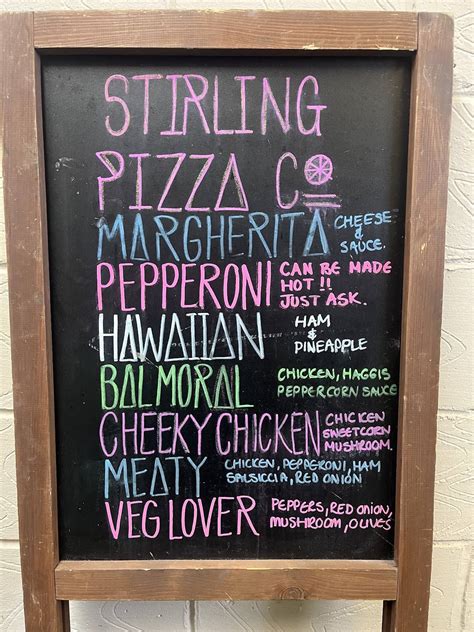 STIRLING
PIZZA CO
MARGHERITA CHEESE
&
SAUCE.
PEPPERONI CAN BE MADE
HOT!!
JUST ASK.
HAWAIIAN HAM
&
PINEAPPLE
BALMORAL CHICKEN, HAGGIS
PEPPERCORN SAUCE
CHEEKY CHICKEN CHICKEN
SWEETCORN
MUSHROOM.
MEATY CHICKEN, PEPPERONI, HAM
SALSICCIA, RED ONION
VEG LOVER PEPPERS, RED ONION,
MUSHROOM, OLIVES